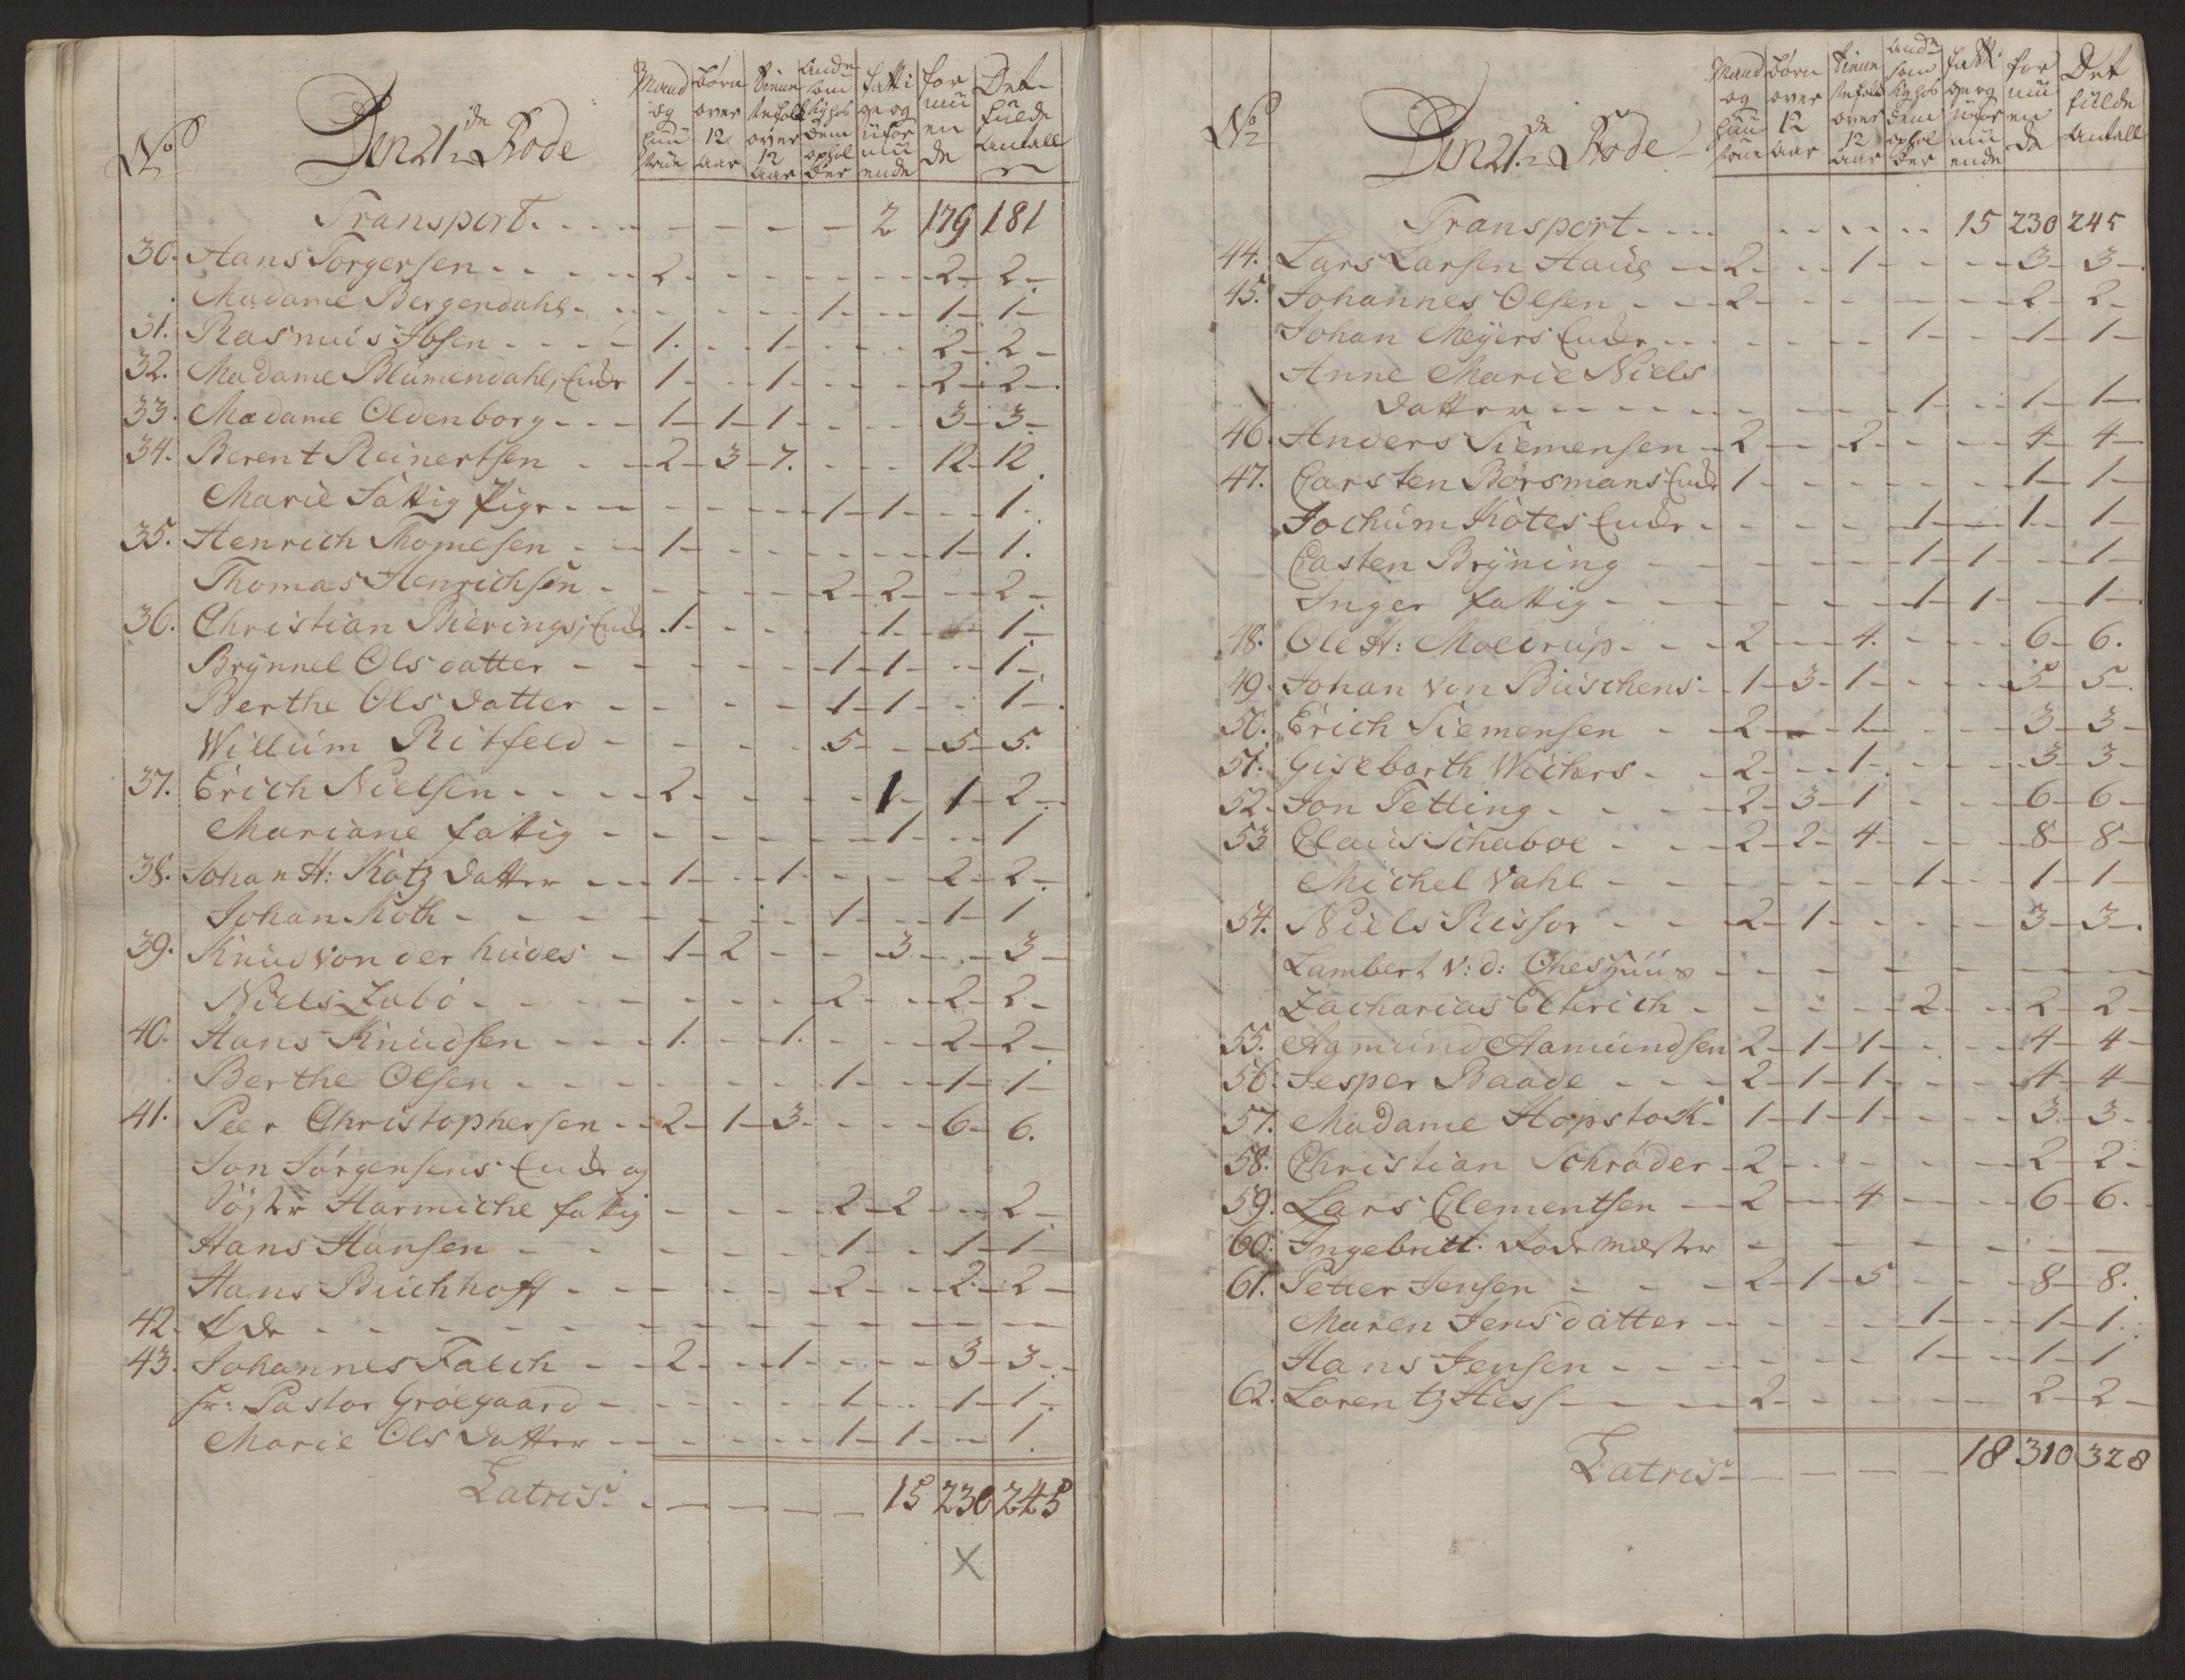 No
Den 21de Rode
Mand og Huustrue
Børn over 12 Aar
Tienestefolk over 12 Aar
Andre som sig hos dem opholder
fattige og uformuende
formuende
Det fulde Antall
Transport - - - - - 2 179 181
30. Hans Torgersen - 2 - - - 2 - 2
Madame Bergendahl - 1 - 1 - 1
31. Rasmus Ibsen - 1 - 1 - 2 - 2
32. Madame Blumendahls Encke 1 - 1 - 2 - 2
33. Madame Oldenborg - 1 - 1 - 1 - 3 - 3
34. Berent Reinertsen - 2 - 3 - 7 - 12 - 12
Marie Fattig Pige - 1 - 1 - 1
35. Henrich Thomesen - 1 - 1 - 1
Thomas Henrichsen - 2 - 2 - 2
36. Christian Bierings Encke 1 - 1 - 1
Brynnel Olsdatter - 1 - 1 - 1
Berthe Olsdatter - 1 - 1 - 1
Willum Ritfeld - 5 - 5 - 5
37. Erich Nielsen - 2 - 1 - 1 - 2
Mariane fattig - 1 - 1
38. Johan H: Kotz datter - 1 - 1 - 2 - 2
Johan Koth - 1 - 1 - 1
39. Knud von der hudes - 1 - 2 - 3 - 3
Niels Zubø - 2 - 2 - 2
40. Hans Knudsen - 1 - 1 - 2 - 2
Berthe Olsen - 1 - 1 - 1
41. Peer Christophersen - 2 - 1 - 3 - 6 - 6
Jon Jørgensens Encke og
Søster Harmiche fattig - 2 - 2 - 2
Hans Hansen - 1 - 1 - 1
Hans Buchhoff - 2 - 2 - 2
42. Øde - - - - -
43. Johannes Falch - 2 - 1 - 3 - 3
hr: Pastor Grøegaard - 1 - 1 - 1
Marie Olsdatter - 1 - 1 - 1
Latris - - - - - 15 230 245
X
No
Den 21de Rode
Mand og Huustrue
Børn over 12 Aar
Tienestefolk over 12 Aar
Andre som sig hos dem opholder
fattige og uformuende
formuende
Det fulde Antall
Transport - - - - - 15 230 245
44. Lars Larsen Haug - 2 - 1 - 3 - 3
45. Johannes Olsen - 2 - 2 - 2
Johan Meÿers Encke - 1 - 1 - 1
Anne Marie Niels
datter - 1 - 1 - 1
46. Anders Siemensen - 2 - 2 - 4 - 4
47. Carsten Børsmans Encke 1 - 1 - 1
Jochum Kotes Encke - 1 - 1 - 1
Casten Brÿning - 1 - 1 - 1
Inger fattig - 1 - 1 - 1
48. Ole H: Moldrup - 2 - 4 - 6 - 6
49. Johan von Buschens - 1 - 3 - 1 - 5 - 5
50. Erich Siemensen - 2 - 1 - 3 - 3
51. Gisebarth Wichers - 2 - 1 - 3 - 3
52. Jon Tetting - 2 - 3 - 1 - 6 - 6
53 Claus Schaboe - 2 - 2 - 4 - 8 - 8
Michel Vahl - 1 - 1 - 1
54. Niels Rissor - 2 - 1 - 3 - 3
Lambert v: d: - - - - -
Zacharias Elterich - 2 - 2 - 2
55. Aamund Aamundsen 2 - 1 - 1 - 4 - 4
56. Jesper Baade - 2 - 1 - 1 - 4 - 4
57. Madame Hopstok - 1 - 1 - 1 - 3 - 3
58. Christian Schrøder - 2 - 2 - 2
59. Lars Clementsen - 2 - 4 - 6 - 6
60. Ingebritt. Rodemæster - - - - -
61. Petter Jensen - 2 - 1 - 5 - 8 - 8
Maren Jensdatter - 1 - 1 - 1
Hans Jensen - 1 - 1 - 1
62. Lorentz Hess - 2 - 2 - 2
Latris - - - - - 18 310 328